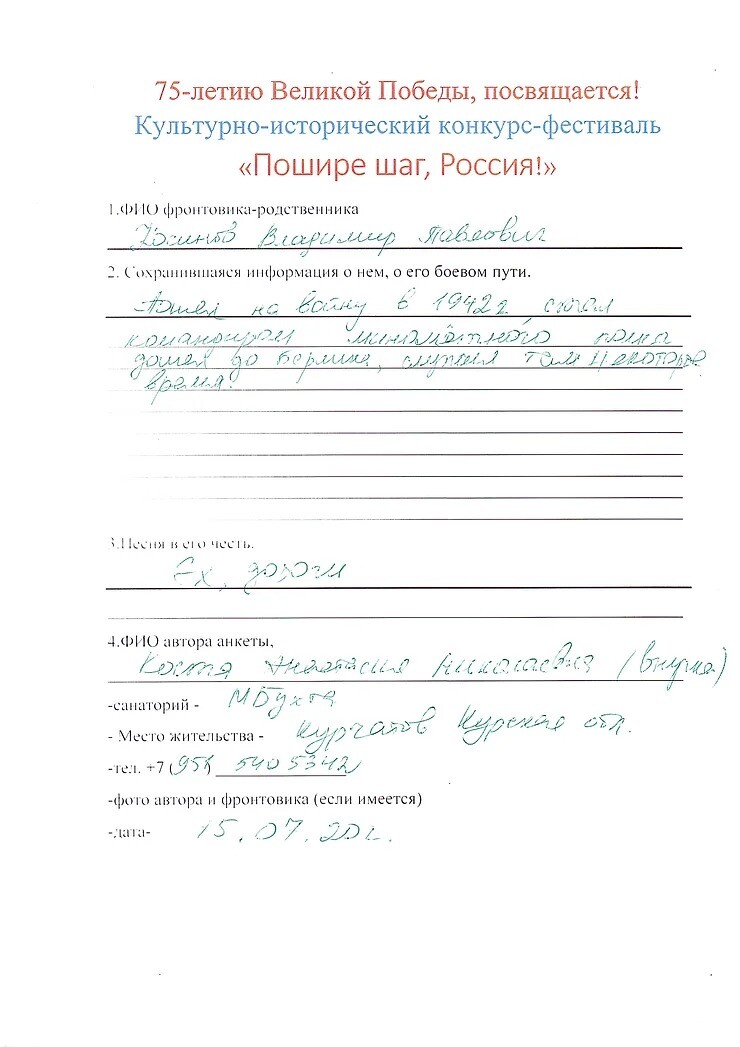 75-летию Великой Победы, посвящается!
Культурно-исторический конкурс-фестиваль
«Пошире шаг, Россия!»
1.ФИО фронтовика-родственника
Владимир Павлович
2. Сохранившаяся информация о нем, о его боевом пути.
на войну в 1942 г, стал
командиром миномётного полка
дошел до Берлина, служил там некоторое
время.
3.Песня в его честь.
Эх, дороги
4.ФИО автора анкеты,
Анастасия Николаевна (внучка)
-санаторий - МБухта
- Место жительства - Курчатов Курская обл.
-тел. +7 (951) 540 5342
-фото автора и фронтовика (если имеется)
-дата- 15.07.20г.